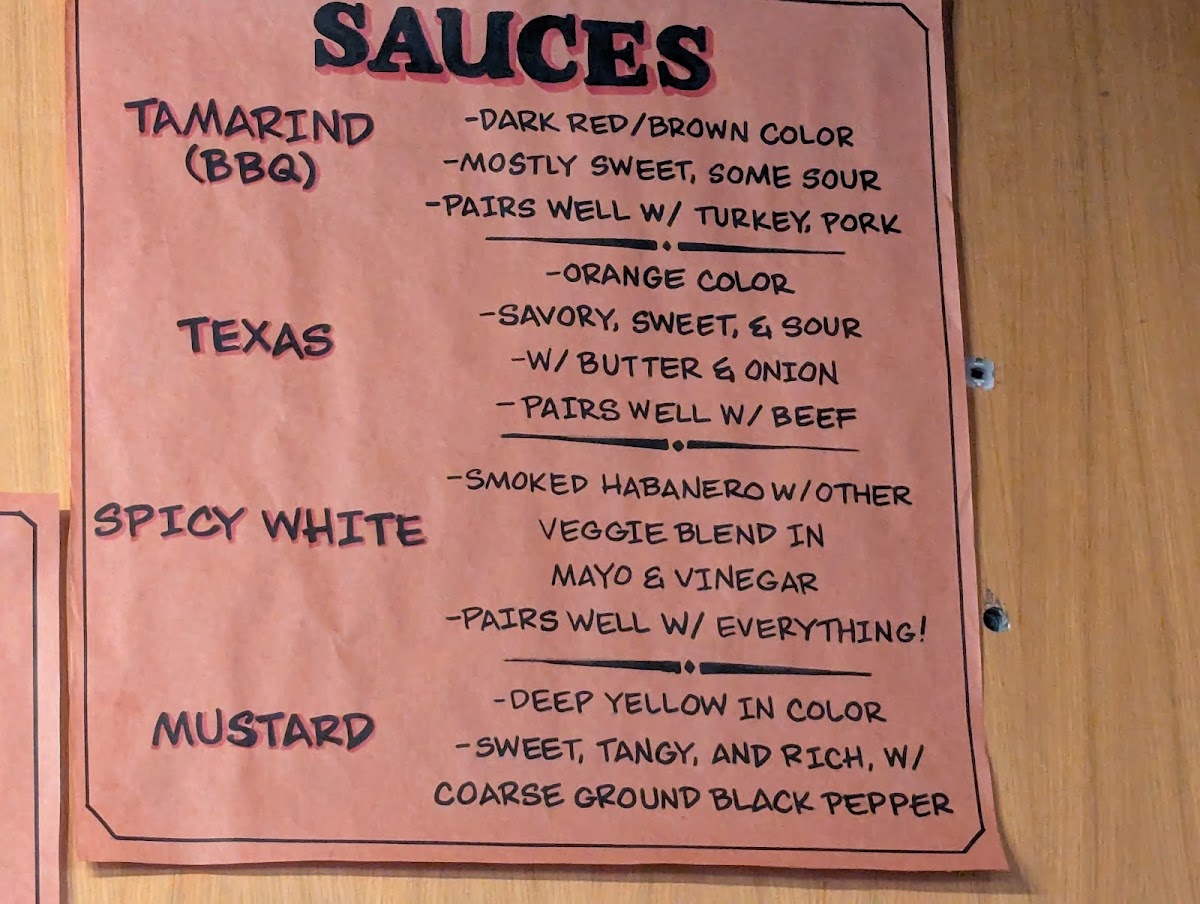 SAUCES
TAMARIND
(BBQ)
-DARK RED/BROWN COLOR
-MOSTLY SWEET, SOME SOUR
-PAIRS WELL W/ TURKEY, PORK
TEXAS
-ORANGE COLOR
-SAVORY, SWEET, & SOUR
-W/ BUTTER & ONION
-PAIRS WELL W/ BEEF
SPICY WHITE
-SMOKED HABANERO W/OTHER
VEGGIE BLEND IN
MAYO & VINEGAR
-PAIRS WELL W/ EVERYTHING!
MUSTARD
-DEEP YELLOW IN COLOR
-SWEET, TANGY, AND RICH, W/
COARSE GROUND BLACK PEPPER